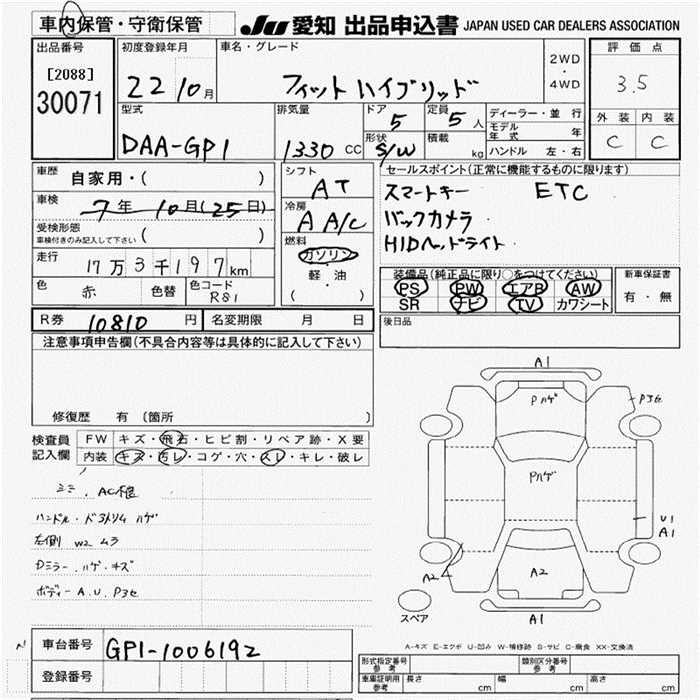 車内保管・守衛保管
JU 愛知 出品申込書 JAPAN USED CAR DEALERS ASSOCIATION
出品番号 [2088] 30071
初度登録年月 22 10月
車名・グレード フィットハイブリッド
2WD ・ 4WD
評価点 3.5
外装 C 内装 C
型式 DAA-GP1
排気量 1330 CC
ドア 5 定員 5人
形状 S/W 積載 kg
ディーラー・並行
モデル年式 年
ハンドル 左・右
車歴 自家用・( )
車検 7年 10月(25日)
受検形態 車検付きのみ記入して下さい ( )
走行 17万3千197km
色 赤 色替 色コード R81
シフト AT
冷房 A A/C
燃料 ガソリン
軽・油
( )
セールスポイント(正常に機能するものに限ります)
スマートキー ETC
バックカメラ
HIDヘッドライト
装備品(純正品に限り○をつけてください)
PS PW エアB AW
SR ナビ TV カワシート
新車保証書 有・無
R券 10810 円 名変期限 月 日
後日品
注意事項申告欄(不具合内容等は具体的に記入して下さい)
修復歴 有 (箇所 )
検査員記入欄
FW キズ・飛石・ヒビ割・リペア跡・X要
内装 キズ・汚レ・コゲ・穴・スレ・キレ・破レ
ハンドル・ドアトリム ハゲ
左側 W2 ムラ
Dミラー・ハゲ・キズ
ボディー A.U.P多
A1
Pハゲ
P多
Pハゲ
U1
A1
A2
A2
A1
スペア
A-キズ E-エクボ U-凹み W-補修跡 S-サビ C-腐食 XX-交換済
車台番号 GP1-1006192
登録番号
形式指定番号 参考 類別区分番号 参考
車庫証明用 参考 長さ cm 幅 cm 高さ cm